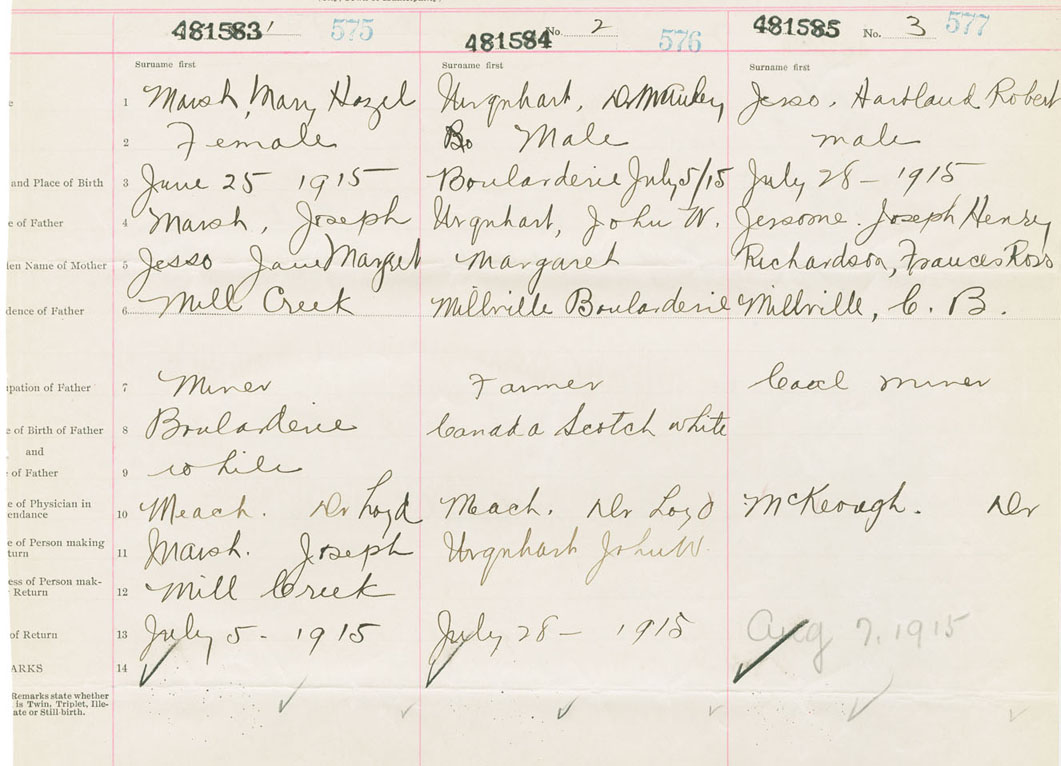 481583 1 575
481584 No. 2 576
481585 No. 3 577
Surname first Surname first Surname first
1 Marsh, Mary Hazel Urquhart, Jesso. Hartland Robert
2 Female Male male
and Place of Birth 3 June 25 1915 Boularderie July 5/15 July 28 - 1915
e of Father 4 Marsh, Joseph Urquhart, John W. Jerome. Joseph Henry
den Name of Mother 5 Jesso Jane Margret Margaret Richardson, Frances Ross
dence of Father 6 Mill Creek Millville Boularderie Millville, C. B.
upation of Father 7 Miner Farmer Coal miner
e of Birth of Father 8 Boularderie Canada Scotch white
and
of Father 9 white
e of Physician in
endance 10 Meach. Dr Loyd Meach. Dr Loyd McKeough. Dr
e of Person making
turn 11 Marsh. Joseph Urquhart John W.
ess of Person mak-
Return 12 Mill Creek
of Return 13 July 5 - 1915 July 28 - 1915 Aug 7, 1915
ARKS 14
Remarks state whether
is Twin, Triplet, Ille-
ate or Still-birth.